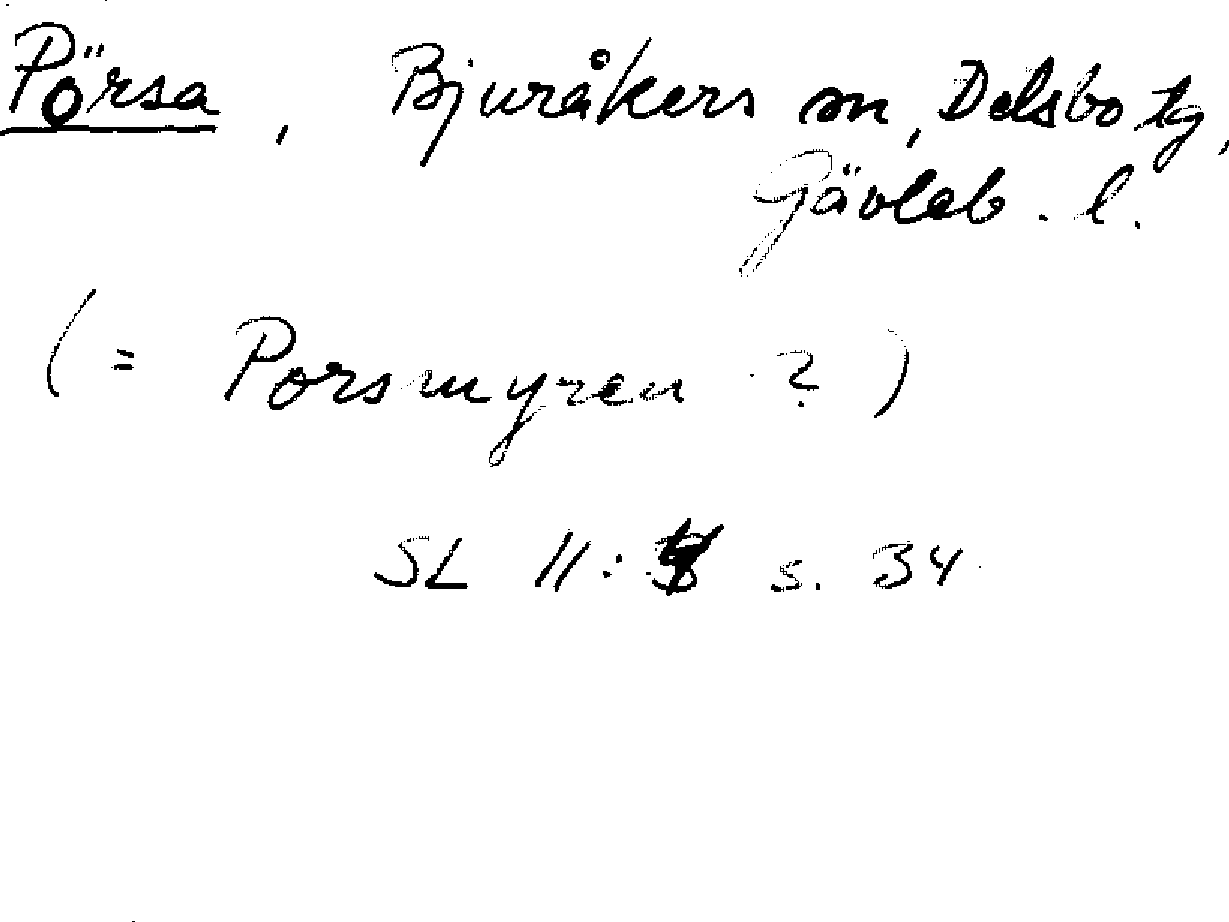 Pörsa, Bjuråkers sn, Delsbo tg,
Gävleb. l.
(= Porsmyren ?)
SL II: s. 34